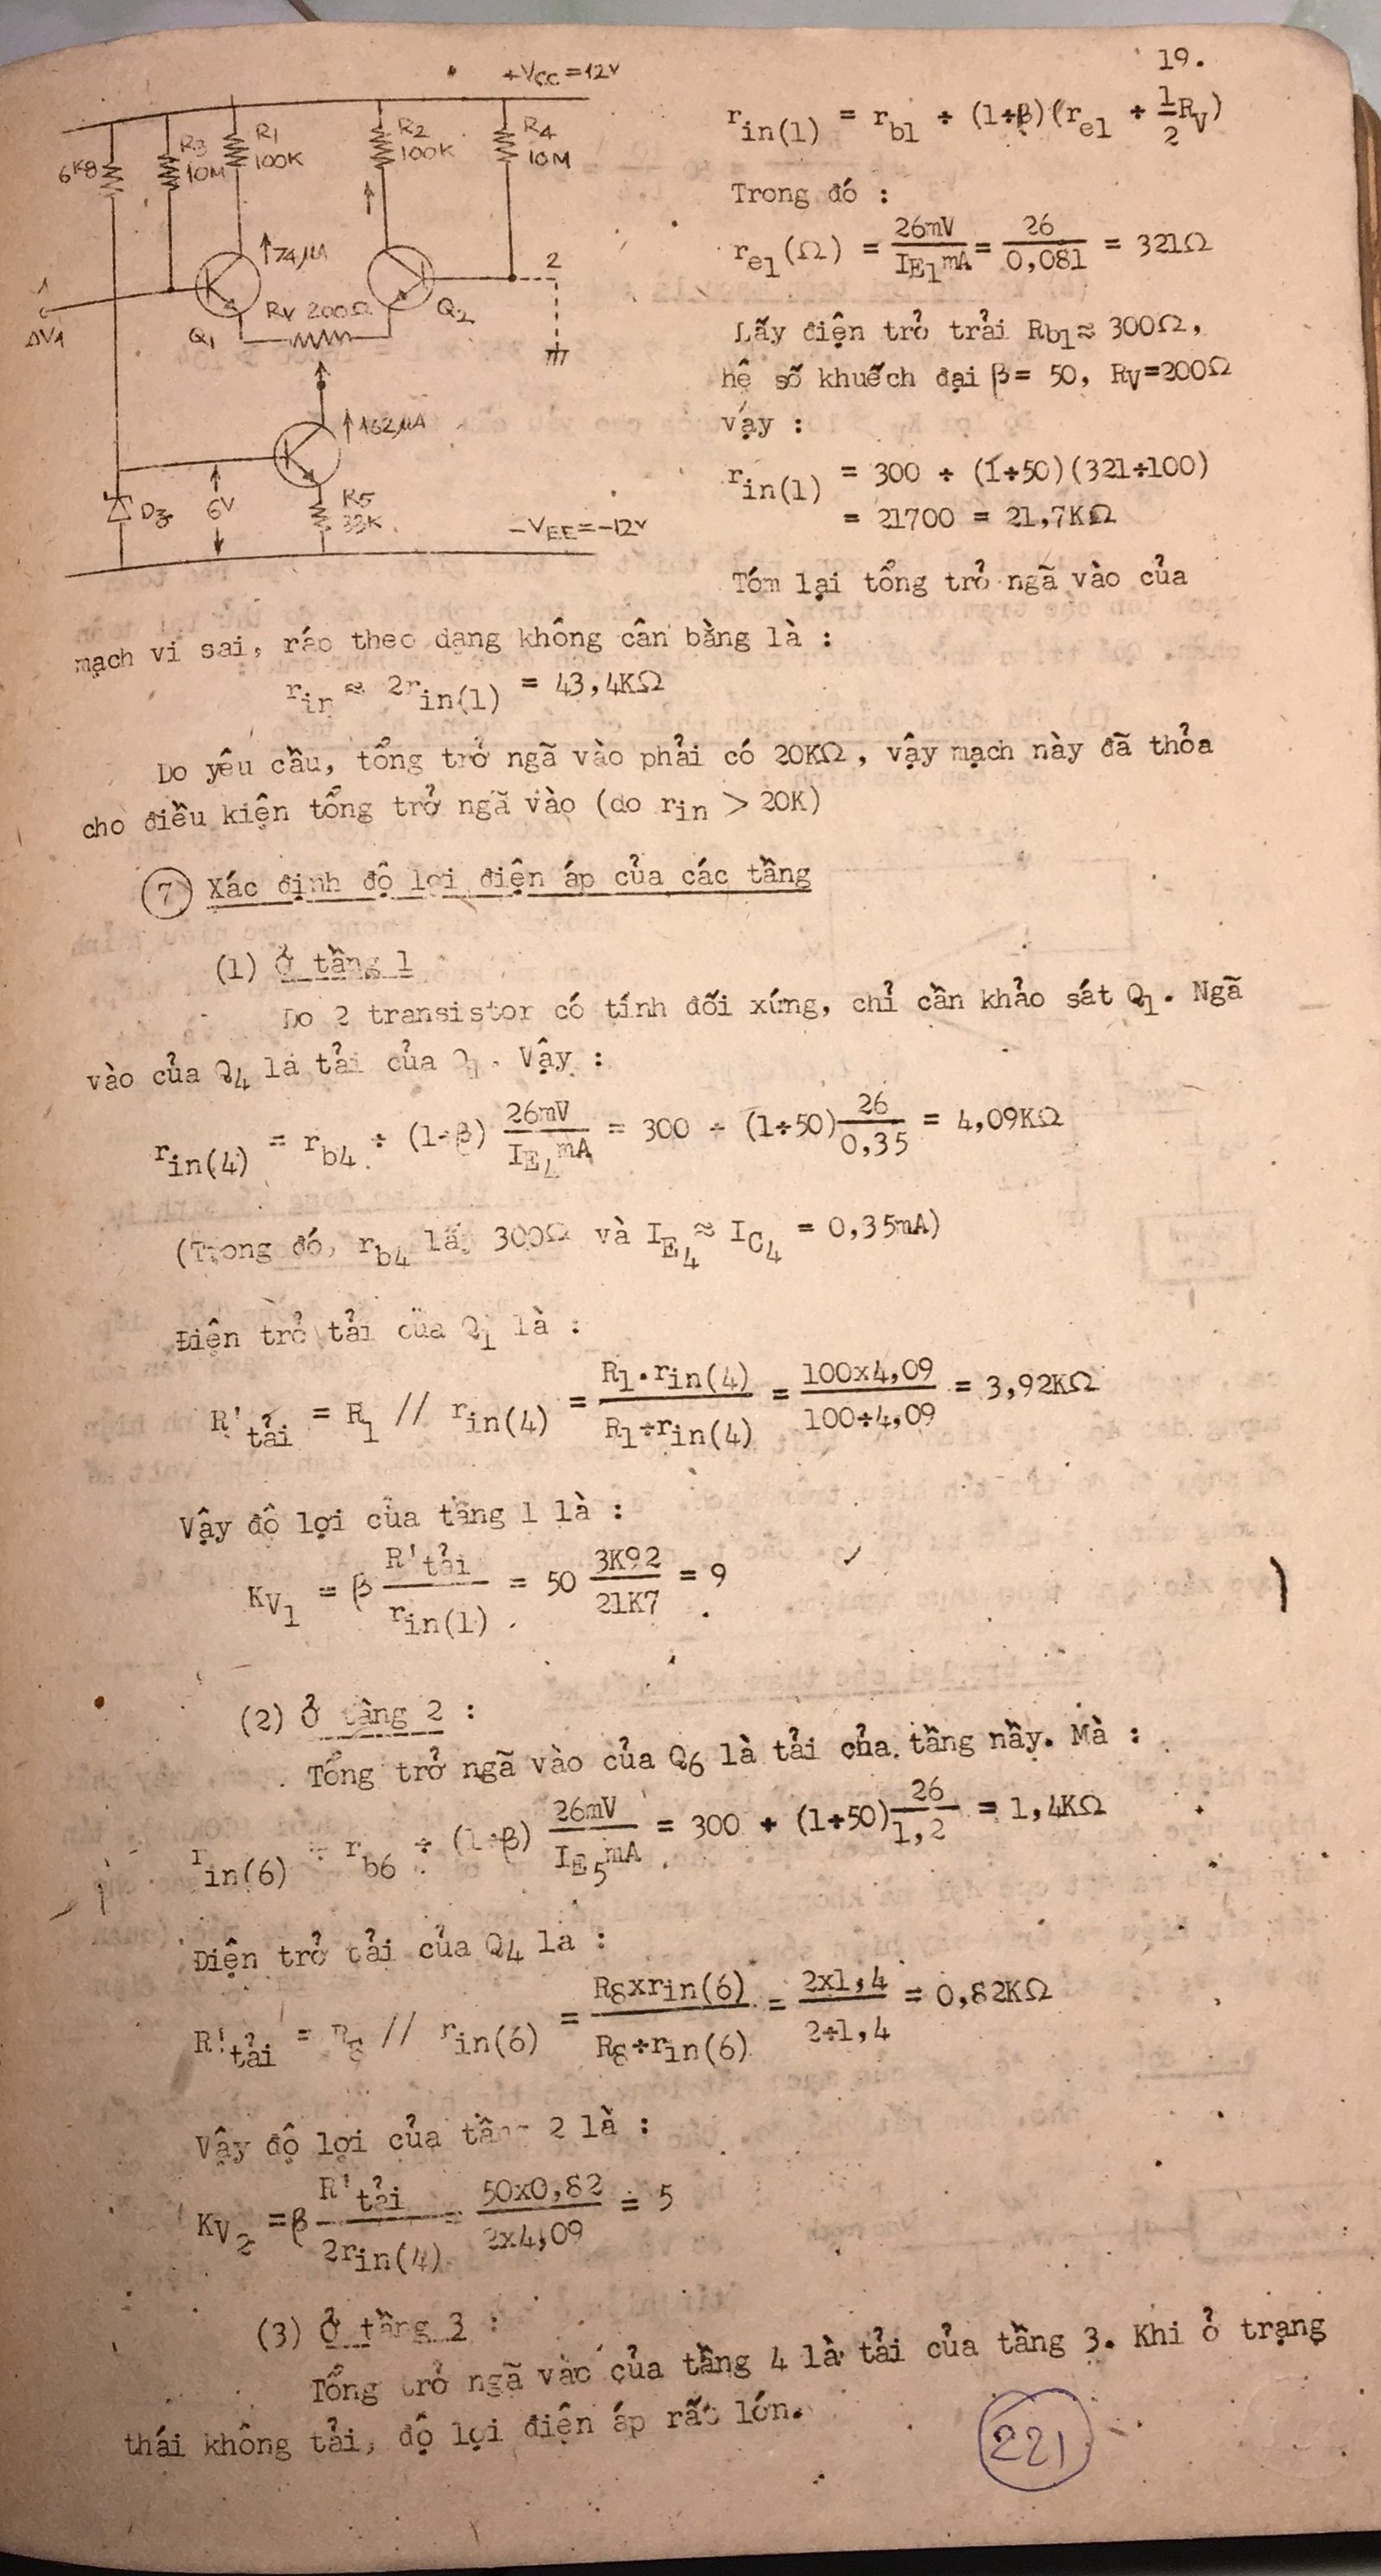 19.
+VCC=12V
6K8
R3
10M
R1
100K
R2
100K
R4
10M
74µA
1
ΔV1
Q1
RV 200Ω
Q2
2
162µA
DZ
6V
R5
33K
-VEE=-12V
rin(1) = rb1 ÷ (1÷β)(re1 ÷ 1/2 RV)
Trong đó :
re1(Ω) = 26mV/IE1mA = 26/0,081 = 321Ω
Lấy điện trở trải Rb1≈ 300Ω,
hệ số khuếch đại β= 50, RV=200Ω
vậy :
rin(1) = 300 ÷ (1÷50)(321÷100)
= 21700 = 21,7KΩ
Tóm lại tổng trở ngã vào của
mạch vi sai, ráp theo dạng không cân bằng là :
rin ≈ 2rin(1) = 43,4KΩ
Do yêu cầu, tổng trở ngã vào phải có 20KΩ, vậy mạch này đã thỏa
cho điều kiện tổng trở ngã vào (do rin > 20K)
7 Xác định độ lợi điện áp của các tầng
(1) Ở tầng 1
Do 2 transistor có tính đối xứng, chỉ cần khảo sát Q1. Ngã
vào của Q4 là tải của Q1. Vậy :
rin(4) = rb4 ÷ (1÷β) 26mV/IE4mA = 300 ÷ (1÷50) 26/0,35 = 4,09KΩ
(Trong đó, rb4 lấy 300Ω và IE4 ≈ IC4 = 0,35mA)
Điện trở tải của Q1 là :
R'tải = R1 // rin(4) = R1.rin(4)/R1÷rin(4) = 100x4,09/100÷4,09 = 3,92KΩ
Vậy độ lợi của tầng 1 là :
KV1 = β R'tải/rin(1) = 50 3K92/21K7 = 9
(2) Ở tầng 2 :
Tổng trở ngã vào của Q6 là tải của tầng nầy. Mà :
rin(6) = rb6 ÷ (1÷β) 26mV/IE5mA = 300 + (1÷50) 26/1,2 = 1,4KΩ
Điện trở tải của Q4 là :
R'tải = R8 // rin(6) = R8xrin(6)/R8÷rin(6) = 2x1,4/2÷1,4 = 0,82KΩ
Vậy độ lợi của tầng 2 là :
KV2 =β R'tải/2rin(4) = 50x0,82/2x4,09 = 5
(3) Ở tầng 3 :
Tổng trở ngã vào của tầng 4 là tải của tầng 3. Khi ở trạng
thái không tải, độ lợi điện áp rất lớn.
221